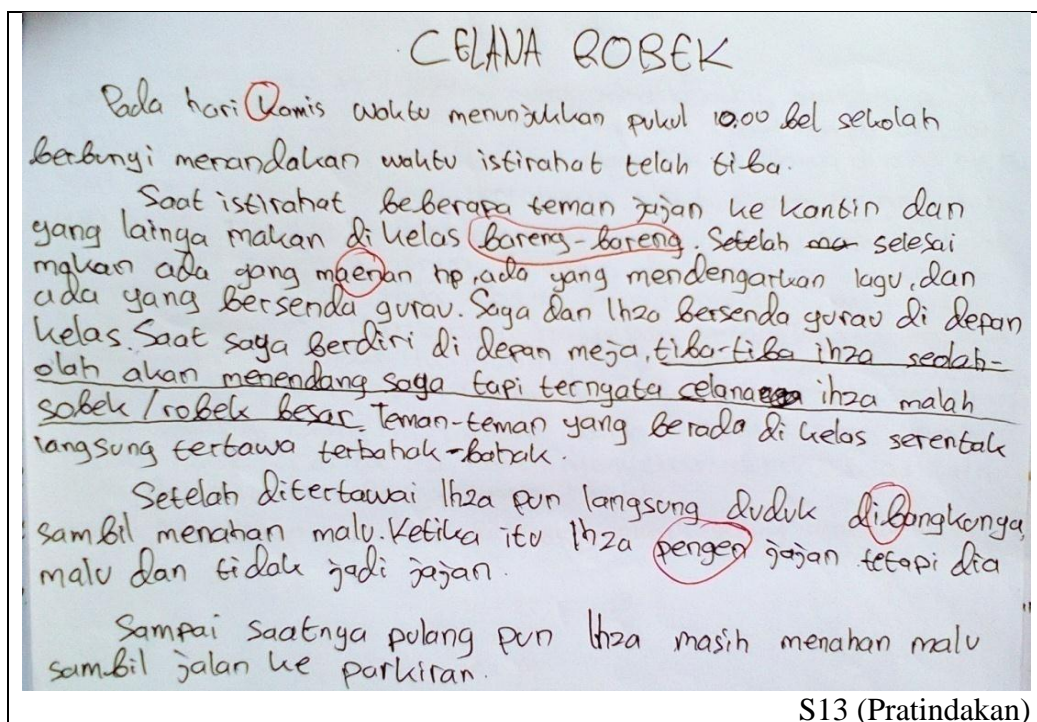 CELANA ROBEK
Pada hari Kamis waktu menunjukkan pukul 10.00 bel sekolah
berbunyi menandakan waktu istirahat telah tiba.
Saat istirahat beberapa teman jajan ke kantin dan
yang lainga makan di kelas bareng-bareng. Setelah selesai
makan ada yang maenan hp, ada yang mendengarkan lagu, dan
ada yang bersenda gurau. Saya dan Ihza bersenda gurau di depan
kelas. Saat saya berdiri di depan meja, tiba-tiba ihza seolah-
olah akan menendang saya tapi ternyata celana ihza malah
sobek / robek besar. Teman-teman yang berada di kelas serentak
langsung tertawa terbahak-bahak.
Setelah ditertawai Ihza pun langsung duduk dibangkunya,
sambil menahan malu. Ketika itu Ihza pengen jajan tetapi dia
malu dan tidak jadi jajan.
Sampai saatnya pulang pun Ihza masih menahan malu
sambil jalan ke parkiran.
S13 (Pratindakan)